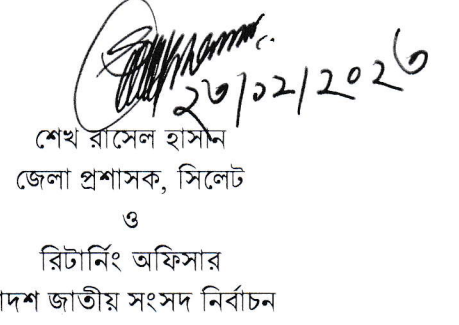 ২৩/১২/২০২৩
শেখ রাসেল হাসান
জেলা প্রশাসক, সিলেট
ও
রিটার্নিং অফিসার
াদশ জাতীয় সংসদ নির্বাচন